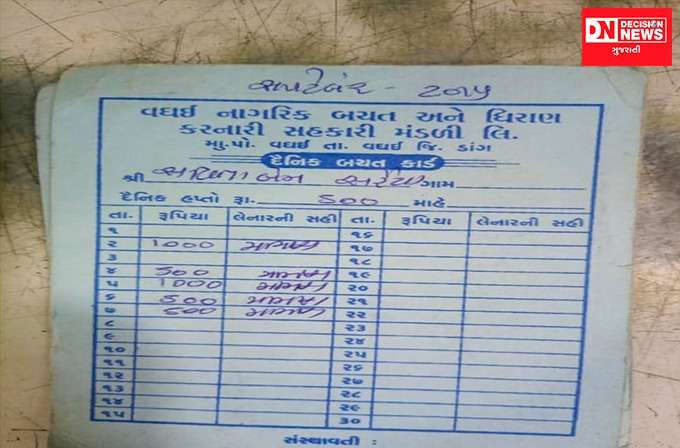 DN DECISION NEWS
ગુજરાતી
સપ્ટેમ્બર - ૨૦૨૫
વઘઈ નાગરિક બચત અને ધિરાણ
કરનારી સહકારી મંડળી લિ.
મુ.પો. વઘઈ તા. વઘઈ જિ. ડાંગ
દૈનિક બચત કાર્ડ
શ્રી બેન ગામ
દૈનિક હપ્તો રૂા. ૬૦૦ માહે
તા. રૂપિયા લેનારની સહી તા. રૂપિયા લેનારની સહી
૧ ૧૬
૨ 1000 ૧૭
૩ ૧૮
૪ ૬૦૦ ૧૯
૫ 1000 ૨૦
૬ ૬૦૦ ૨૧
૭ ૬૦૦ ૨૨
૮ ૨૩
૯ ૨૪
૧૦ ૨૫
૧૧ ૨૬
૧૨ ૨૭
૧૩ ૨૮
૧૪ ૨૯
૧૫ ૩૦
સંસ્થાવતી :